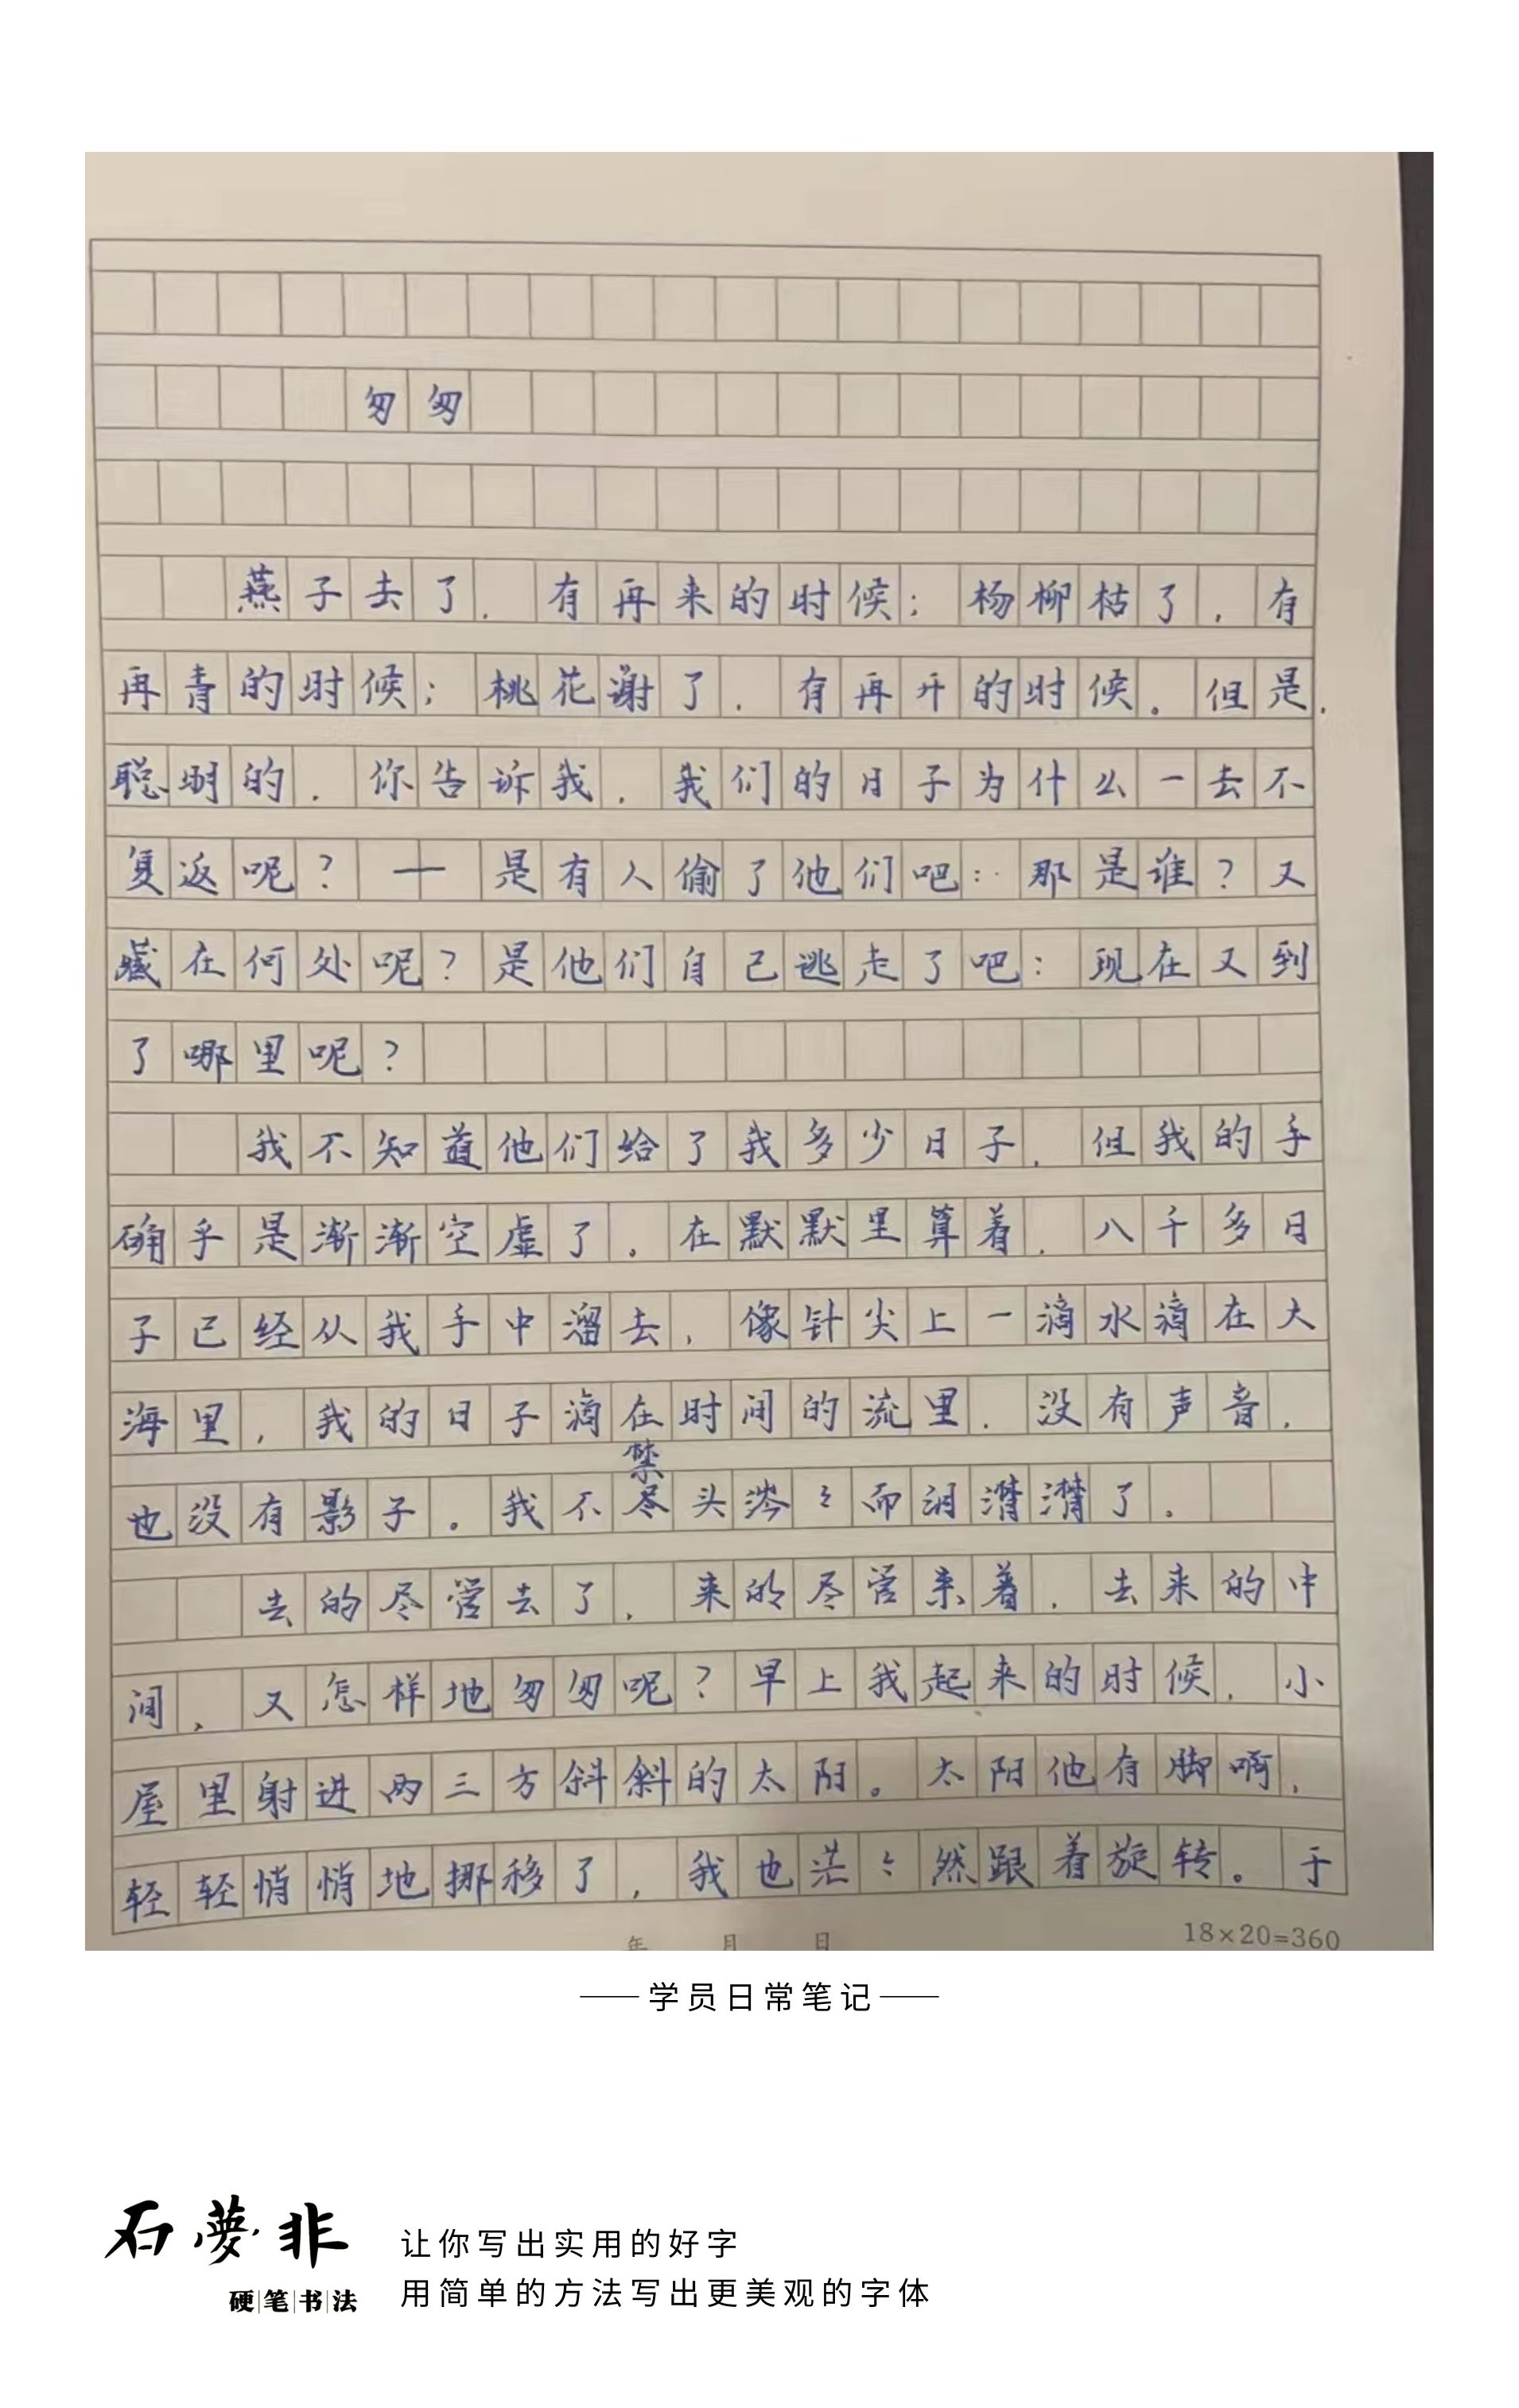 匆匆
燕子去了，有再来的时候；杨柳枯了，有
再青的时候；桃花谢了，有再开的时候。但是，
聪明的，你告诉我，我们的日子为什么一去不
复返呢？一是有人偷了他们吧：那是谁？又
藏在何处呢？是他们自己逃走了吧：现在又到
了哪里呢？
我不知道他们给了我多少日子，但我的手
确乎是渐渐空虚了。在默默里算着，八千多日
子已经从我手中溜去，像针尖上一滴水滴在大
海里，我的日子滴在时间的流里，没有声音，
禁
也没有影子。我不尽头涔々而泪潸潸了。
去的尽管去了，来的尽管来着，去来的中
间，又怎样地匆匆呢？早上我起来的时候，小
屋里射进两三方斜斜的太阳。太阳他有脚啊，
轻轻悄悄地挪移了，我也茫々然跟着旋转。于
年 月 日
18×20=360
学员日常笔记
石夢非
硬笔书法
让你写出实用的好字
用简单的方法写出更美观的字体